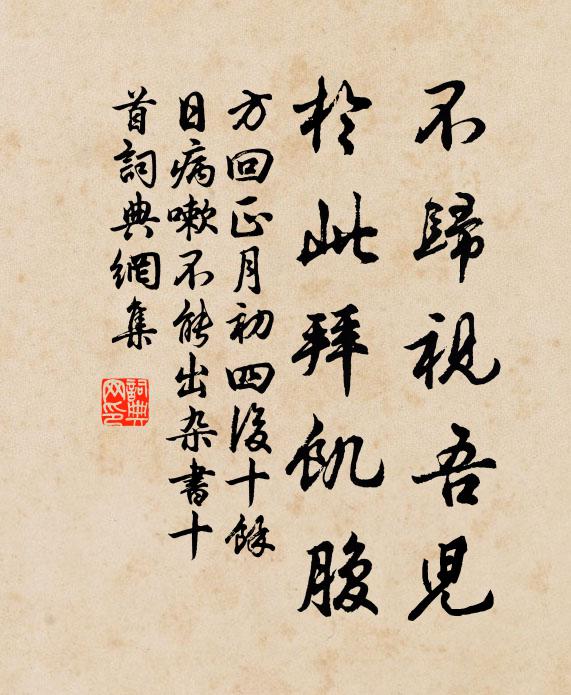 不歸視吾兒
於此拜飢腹
方回正月初四後十餘
日病嗽不能出杂書十
首詞典網集
詞典網印